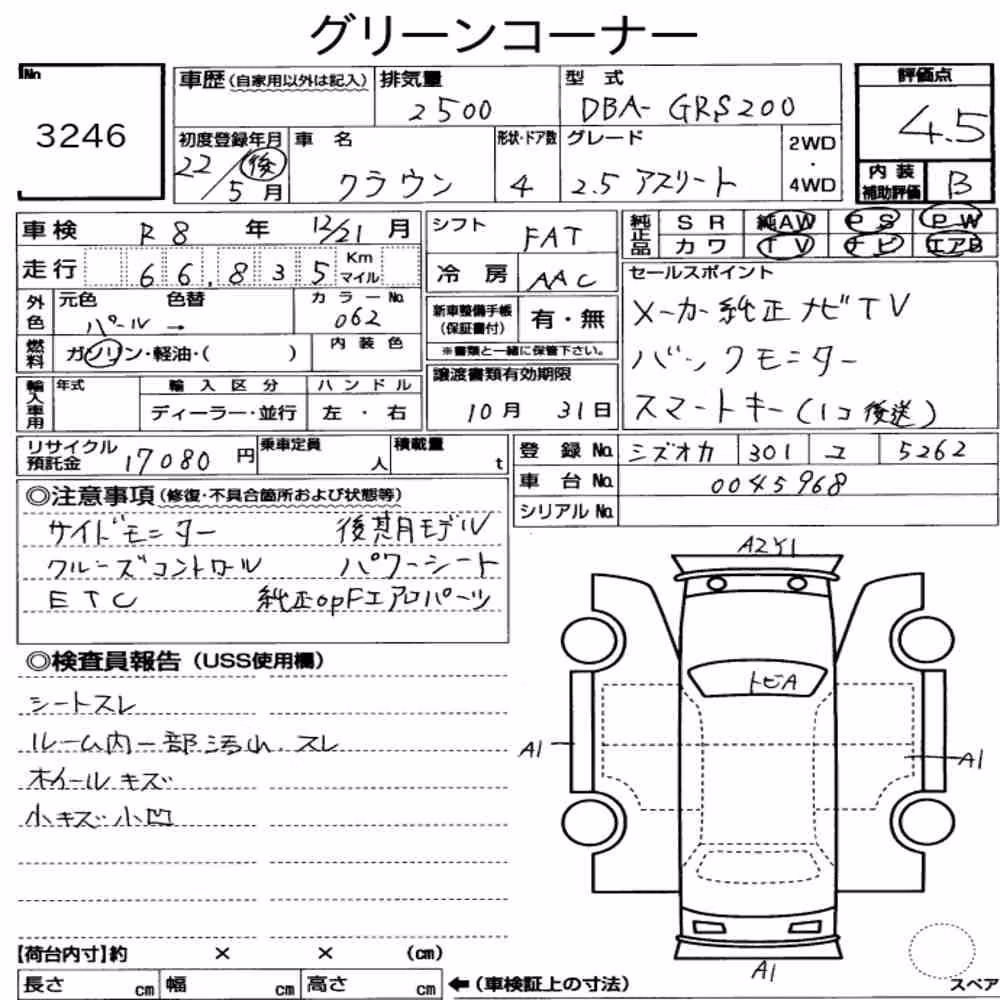 グリーンコーナー
No.
3246
車歴 (自家用以外は記入)
排気量
2500
型 式
DBA-GRS200
評価点
4.5
初度登録年月
22/5月
後
車 名
クラウン
形状・ドア数
4
グレード
2.5 アスリート
2WD
・
4WD
内 装
補助評価
B
車検 R8 年 12/21 月
走行 66,835 Km マイル
シフト
FAT
冷 房
AAC
純正品
S R 純AW P S P W
カ ワ T V ナビ エアB
外色
元色 色替
パール →
カ ラ ー No.
062
燃料
ガソリン・軽油・( )
内 装 色
新車整備手帳
(保証書付)
有・無
※書類と一緒に保管下さい。
セールスポイント
メーカー純正ナビTV
バックモニター
スマートキー(1コ後送)
輸入車用
年式
輸 入 区 分
ディーラー・並行
ハ ン ド ル
左 ・ 右
譲渡書類有効期限
10月 31日
リサイクル
預託金
17080 円
乗車定員
人
積載量
t
登 録 No. シズオカ 301 ユ 5262
車 台 No. 0045968
シリアル No.
◎注意事項 (修復・不具合箇所および状態等)
サイドモニター 後期モデル
クルーズコントロール パワーシート
ETC 純正opFエアロパーツ
◎検査員報告 (USS使用欄)
シートスレ
ルーム内一部汚れ.スレ
ホイールキズ
小キズ小凹
A2Y1
トビA
A1
A1
A1
スペア
【荷台内寸】約 × × (cm)
長さ cm 幅 cm 高さ cm ←(車検証上の寸法)